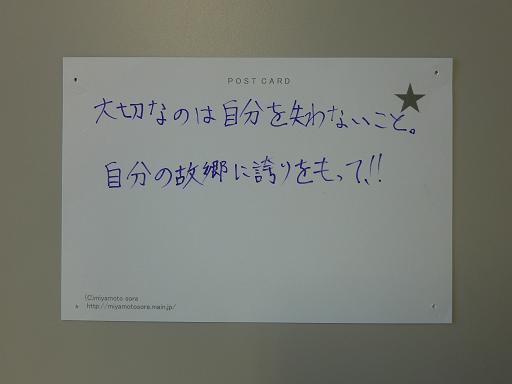 POST CARD
大切なのは自分を失わないこと。
自分の故郷に誇りをもって!!
(C)miyamoto sora
http://miyamotosora.main.jp/